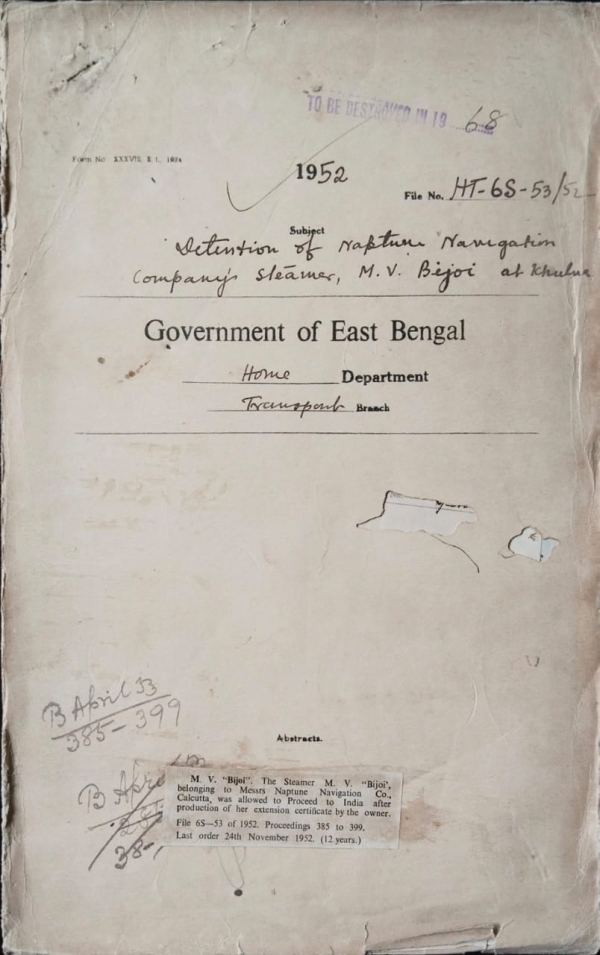 TO BE DESTROYED IN 19 68
Form No. XXXVIII, E. I., 1934
1952
File No. HT-6S-53/52
Subject
Detention of Naptune Navigation
Company's Steamer, M. V. Bijoi at Khulna
Government of East Bengal
Home Department
Transport Branch
B April 53
385-399
Abstracts.
B Apr
38-
M. V. "Bijoi". The Steamer M. V. "Bijoi',
belonging to Messrs Naptune Navigation Co.,
Calcutta, was allowed to Proceed to India after
production of her extension certificate by the owner.
File 6S—53 of 1952. Proceedings 385 to 399.
Last order 24th November 1952. (12 years.)